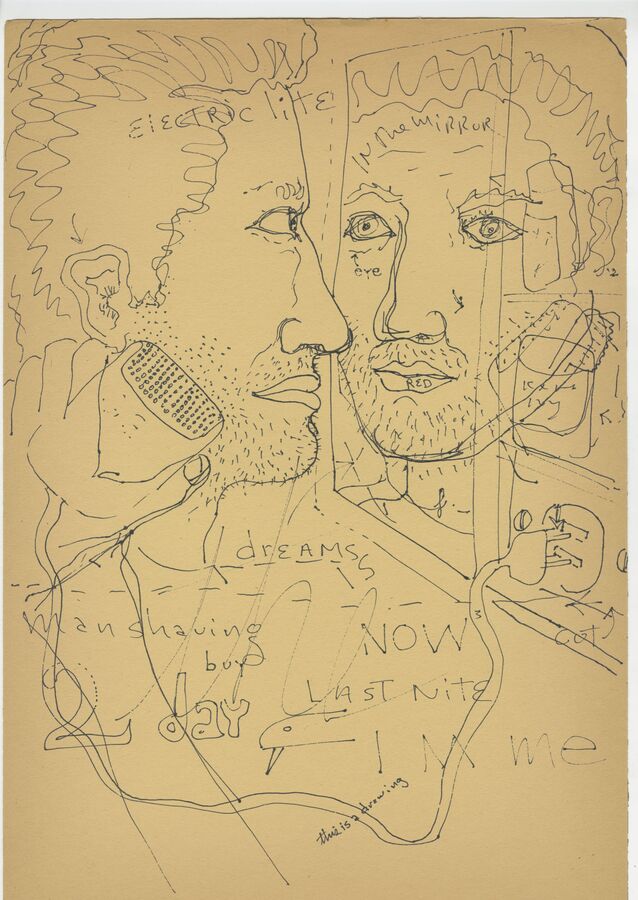 ELECTRIC LITE
IN THE MIRROR
eye
RED
dREAMS
man shaving
NOW
cut
LAST NITE
2 day
I M me
this is a drawing